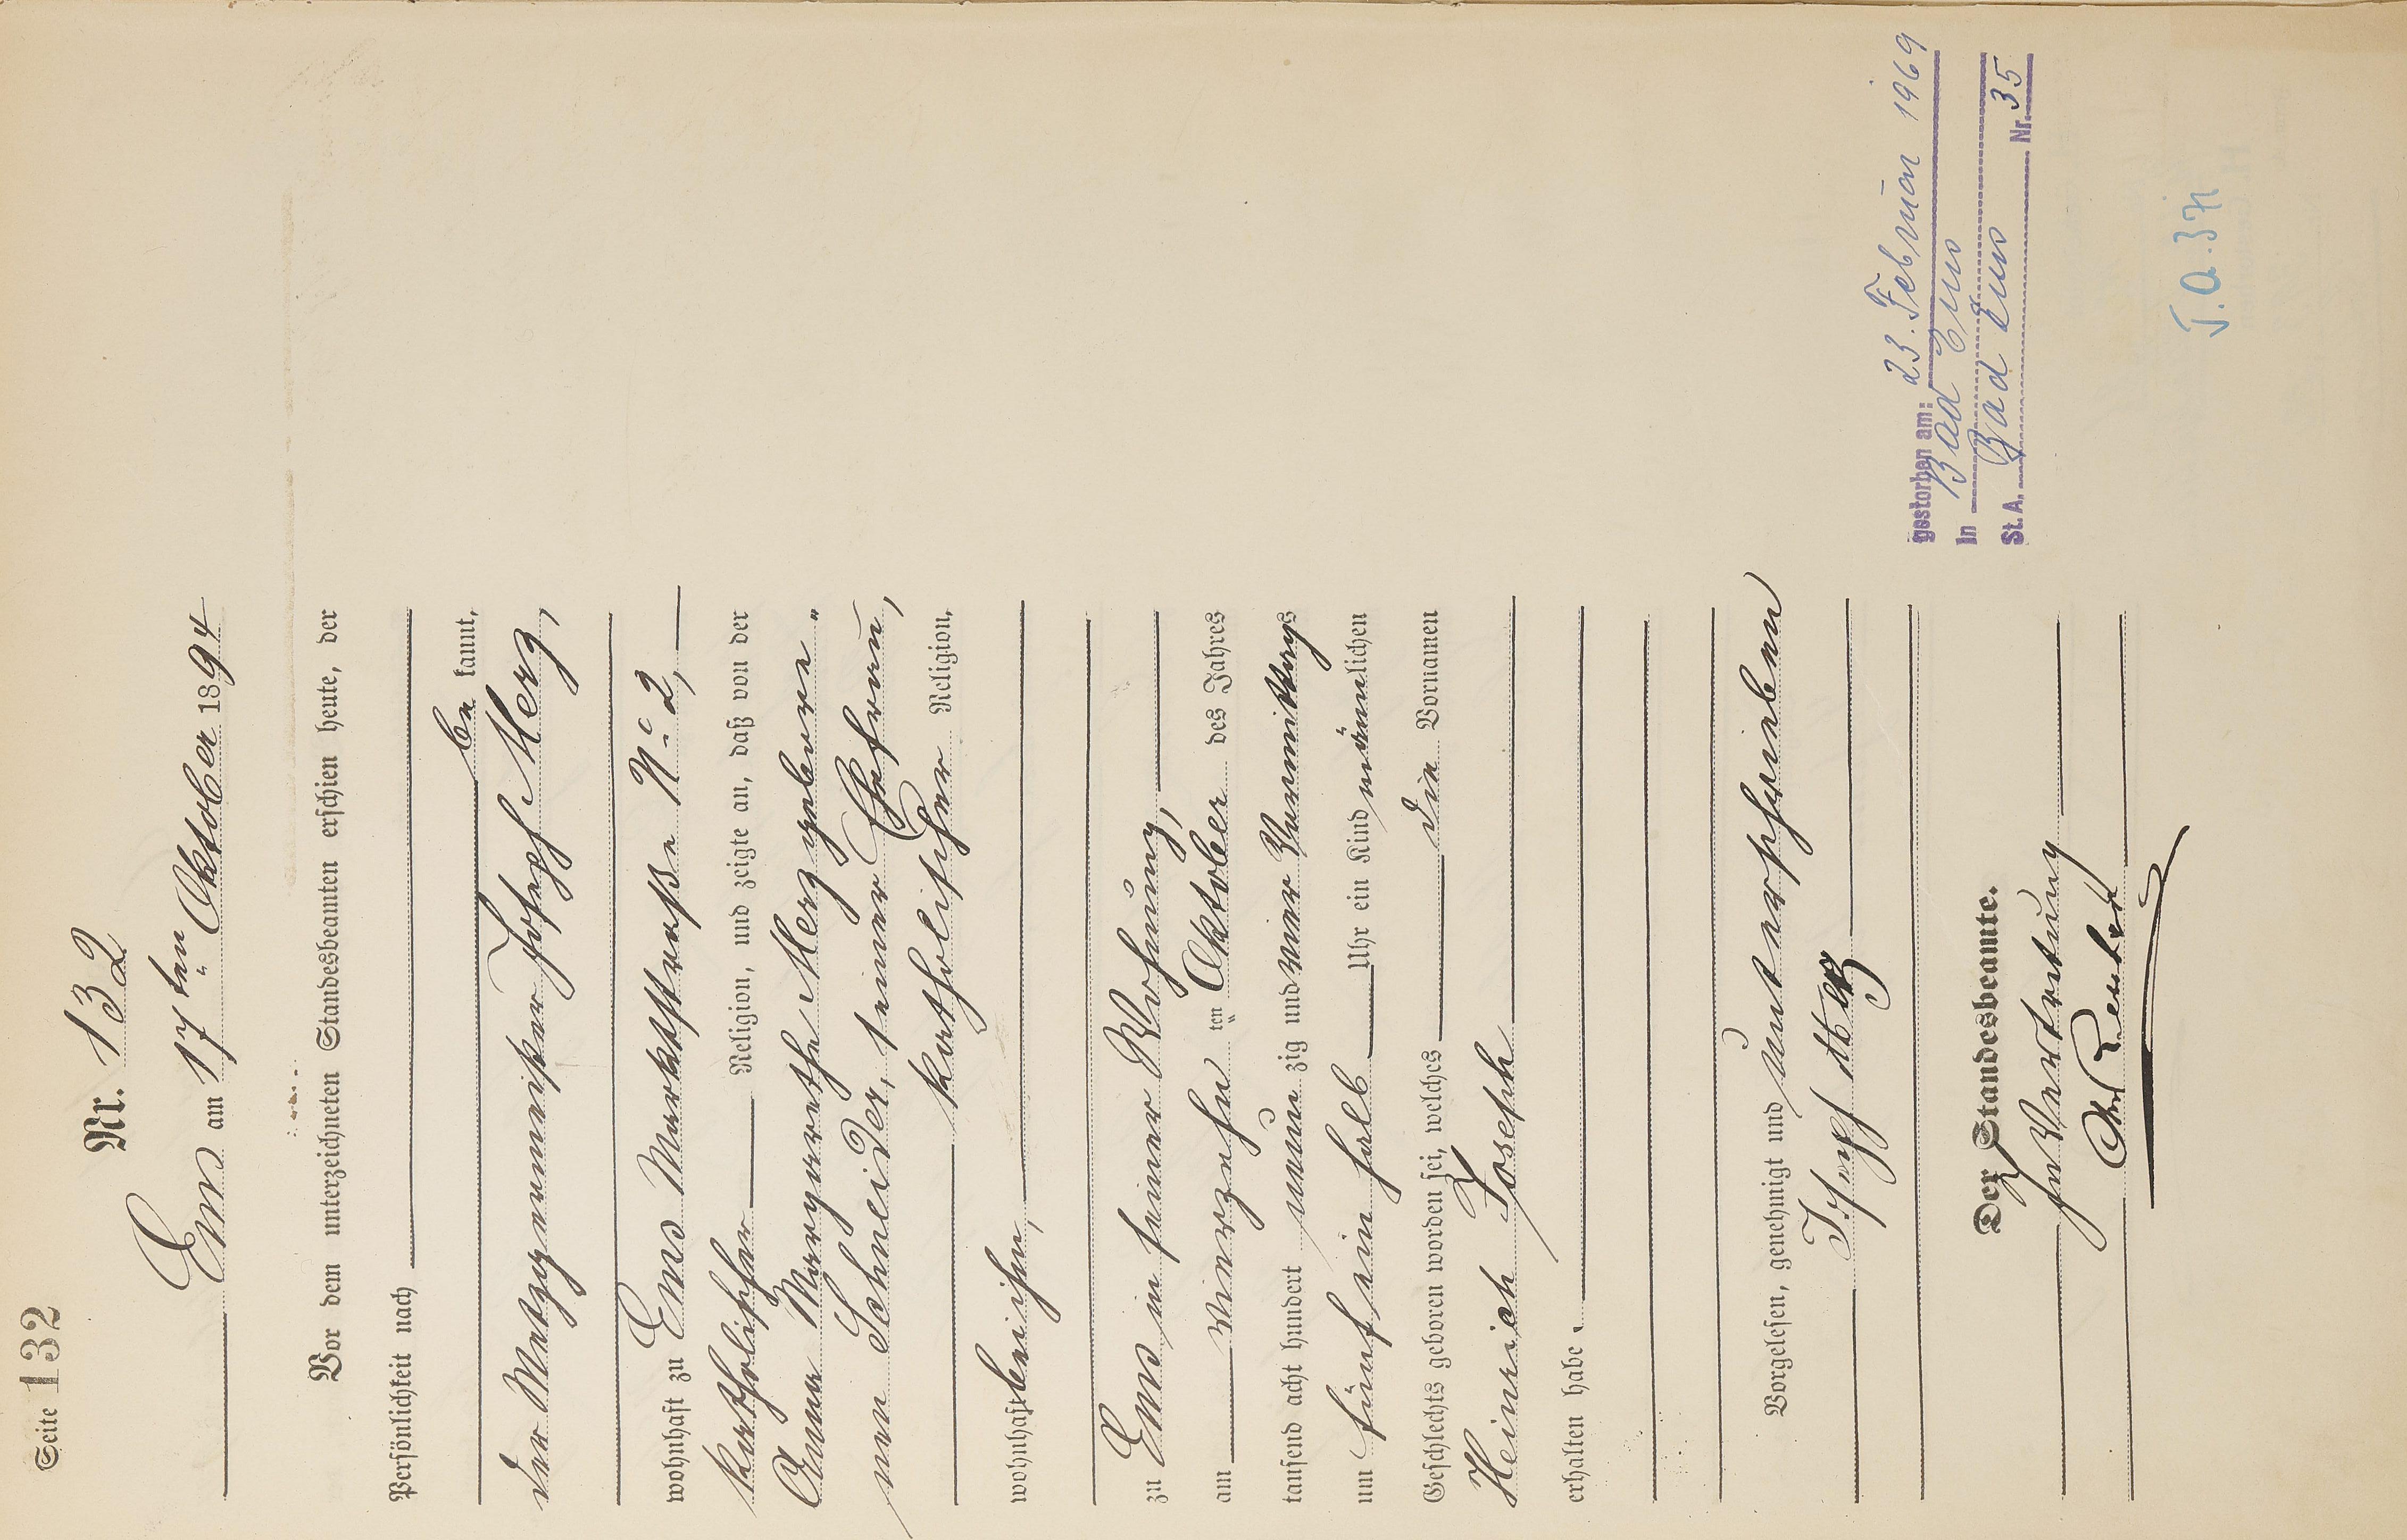 Seite 132
Nr. 132
Ems am 17ten Oktober 1894
Vor dem unterzeichneten Standesbeamten erschien heute, der
Persönlichkeit nach
be kannt,
der Metzgermeister Joseph Merz,
wohnhaft zu Ems Marktstraße No 2,
katholischer Religion, und zeigte an, daß von der
Anna Margarethe Merz gebore-
nen Schneider, seiner Ehefrau,
katholischer Religion,
wohnhaft bei ihm,
zu Ems in seiner Wohnung,
am vierzehn ten Oktober des Jahres
tausend acht hundert neun zig und vier Vormittags
um fünf ein halb Uhr ein Kind männlichen
Geschlechts geboren worden sei, welches die Vornamen
Heinrich Joseph
erhalten habe.
Vorgelesen, genehmigt und unterschrieben
Joseph Merz
Der Standesbeamte.
In Vertretung
gestorben am: 23. Februar 1969
In Bad Ems
St. A. Bad Ems Nr. 35